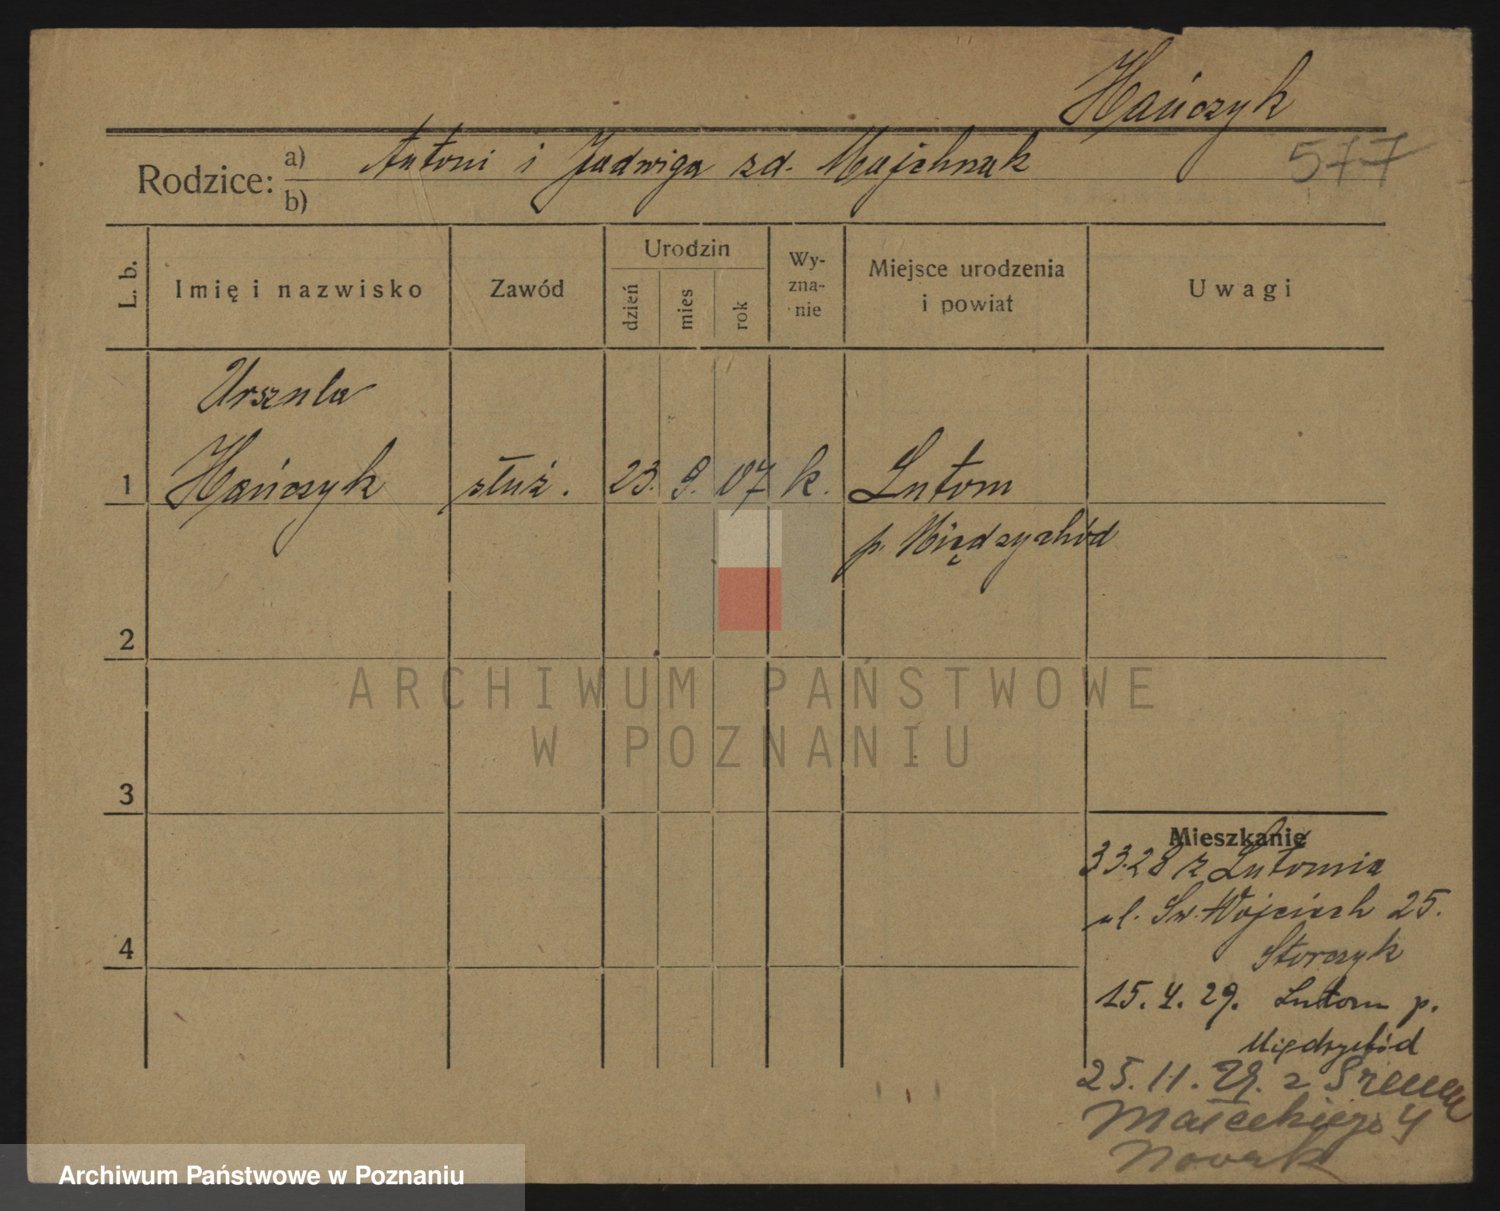 Hańczyk
Rodzice: a) Antoni i Jadwiga zd. Majchrzak
577
b)
L. b.
Imię i nazwisko
Zawód
Urodzin
dzień
mies
rok
Wy-
zna-
nie
Miejsce urodzenia
i powiat
Uwagi
Urszula
1 Hańczyk służ. 23. 9. 07 k. Lutom
p. Międzychód
2
3
4
Mieszkanie
3 3 28 z Lutomia
ul. Św. Wojciech 25.
Storczyk
15. 4. 29. Lutom p.
Międzychód
25. 11. 29. z Śremu
Małeckiego 4
Nowak
ARCHIWUM PAŃSTWOWE
W POZNANIU
Archiwum Państwowe w Poznaniu